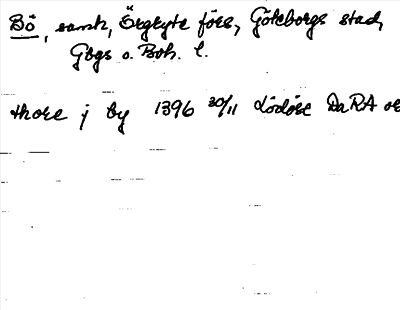 Bö, samh, Örgryte förs, Göteborgs stad,
Gbgs o. Boh. l.
thore j by 1396 30/11 Lödöse DaRA or